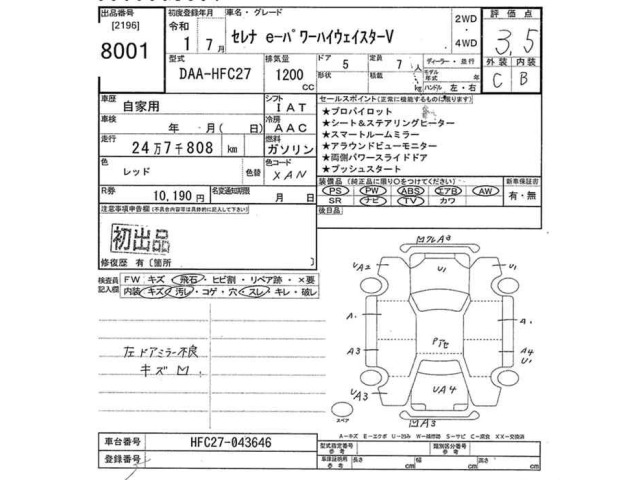 出品番号 初度登録年月 車名・グレード 2WD 評価点
[2196] 令和 セレナ e-ﾊﾟﾜーハイウェイスターV ・
8001 1 年 7 月 4WD 3,5
型式 排気量 ドア 5 定員 7 人 ディーラー・並行 外装 内装
DAA-HFC27 1200 cc 形状 積載 kg モデル年式 年 C B
ハンドル 左・右
車歴 自家用 シフト IAT セールスポイント(正常に機能するものに限ります)
車検 年 月( 日) 冷房 AAC
★プロパイロット
★シート&ステアリングヒーター
★スマートルームミラー
走行 24万7千808 km 燃料 ガソリン ★アラウンドビューモニター
色 レッド 色替 色コード XAN ★両側パワースライドドア
★プッシュスタート
R券 10,190円 名変通知期限 月 日 装備品 (純正品に限り○をつけてください) 新車保証書
PS PW ABS エアB AW 有・無
SR ナビ TV カワ
注意事項申告欄(不具合内容は具体的に記入して下さい) 後日品
初出品
修復歴 有〔箇所 〕
検査員記入欄 FW キズ 飛石・ヒビ割・リペア跡・×要
内装 キズ 汚レ・コゲ・穴・スレ・キレ・破レ
左ドアミラー不良
キズ M
UA2 U1 U1
A. A.
A3 Pアセ A4
U1
UA3 UA4
スペア MA3
A-キズ E-エクボ U-凹み W-補修跡 S-サビ C-腐食 XX-交換済
車台番号 HFC27-043646 型式指定番号 参考 類別区分番号 参考
登録番号 車庫証明用 参考 長さ cm 幅 cm 高さ cm